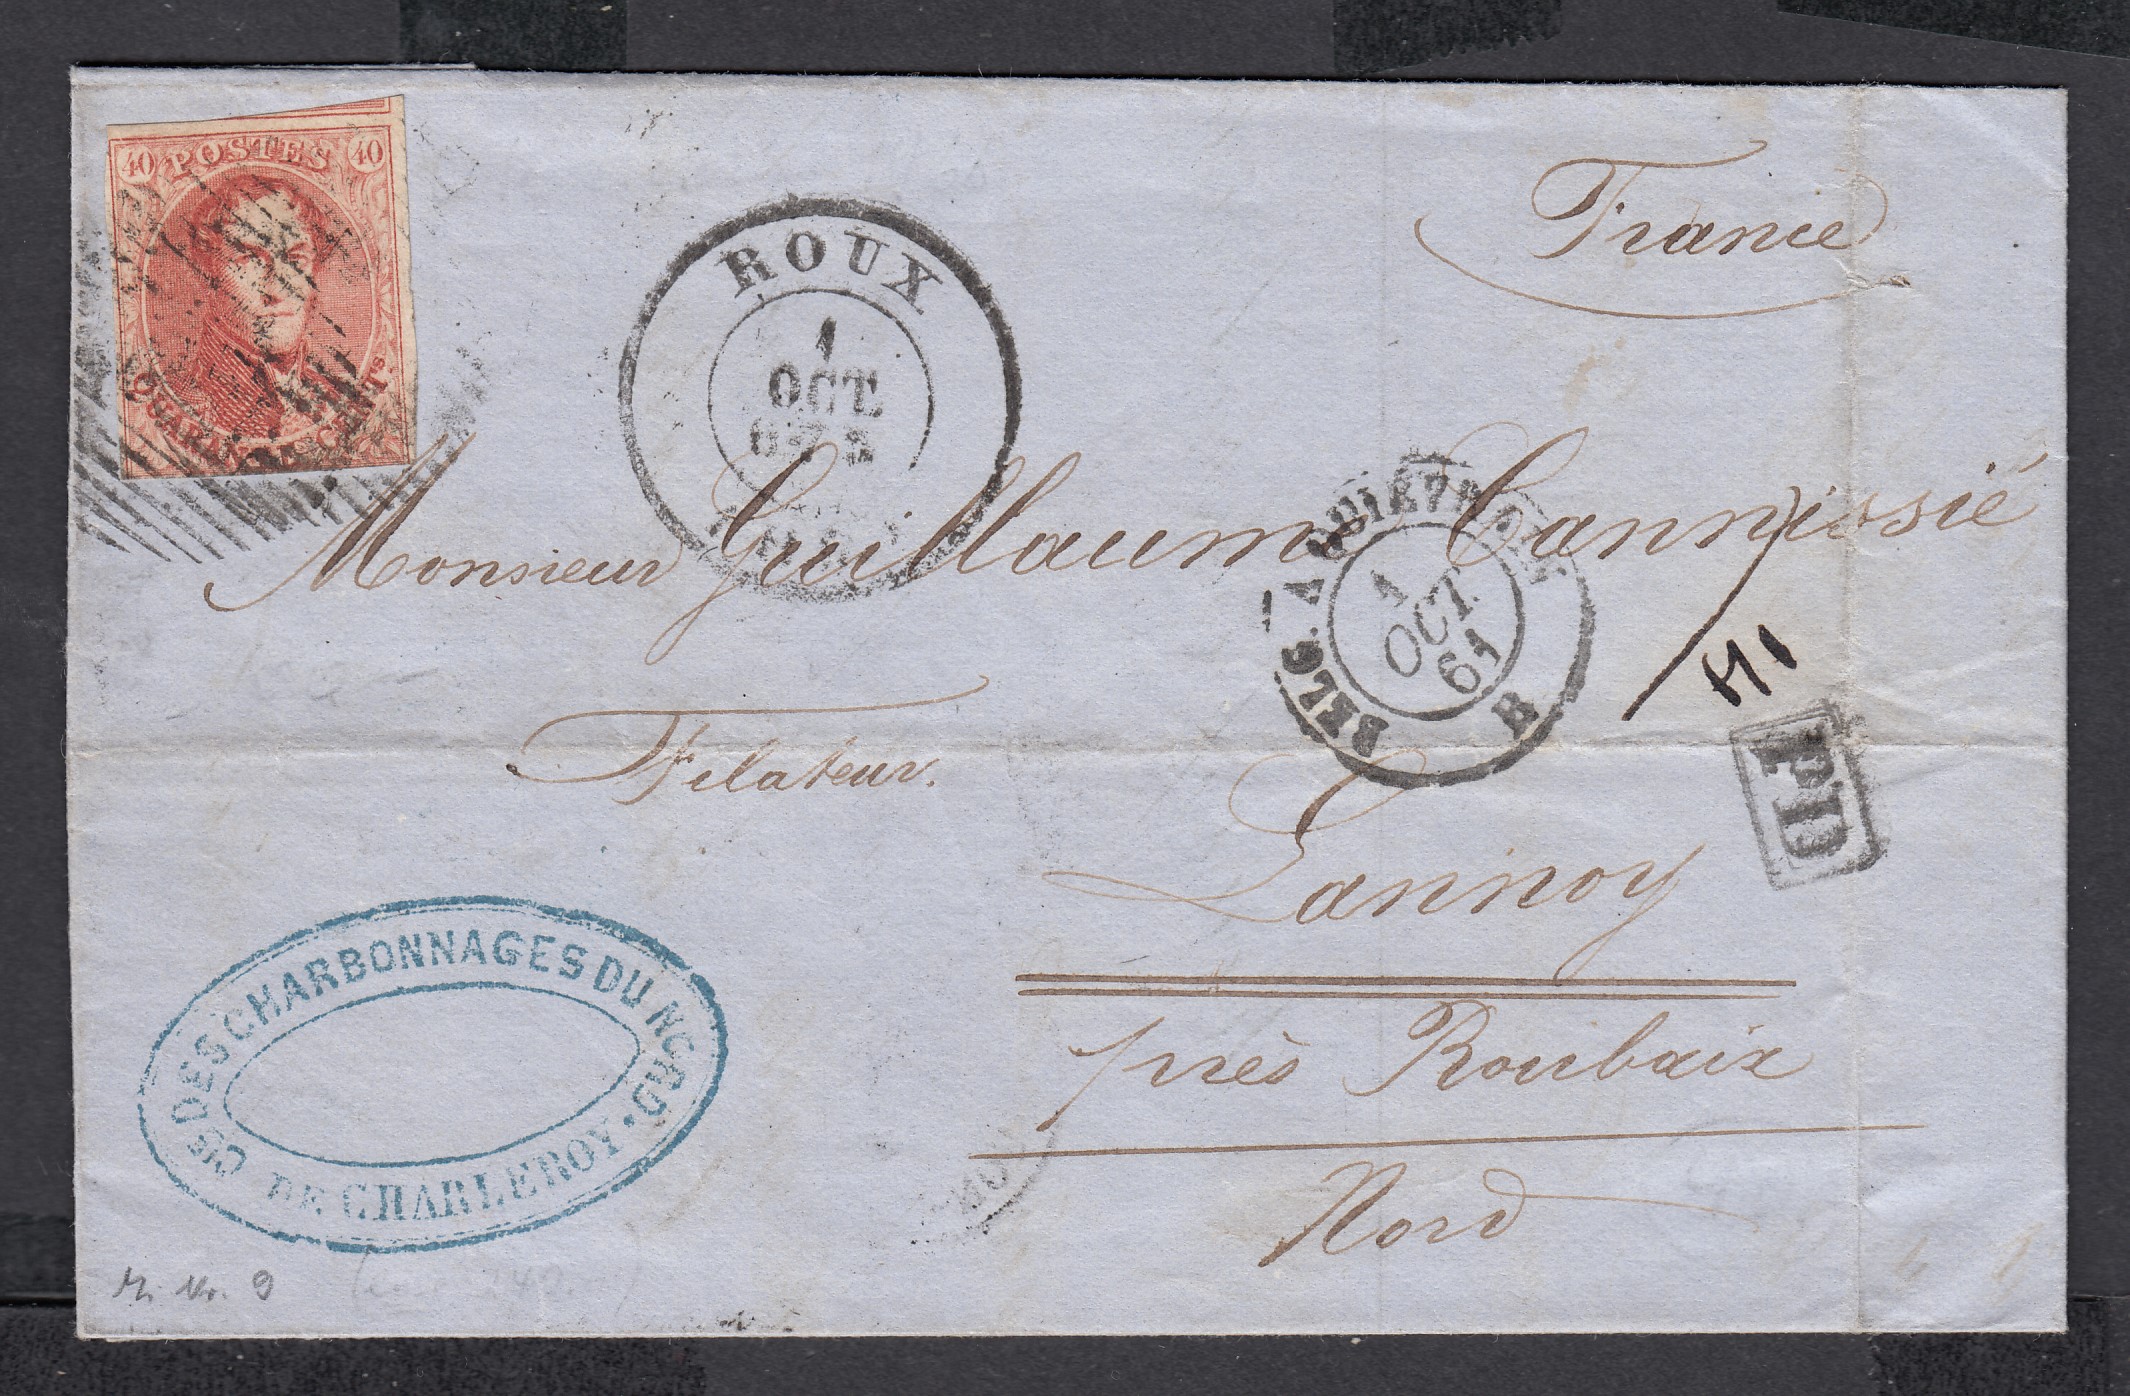 40 POSTES 40
QUARANTE CENTS.
ROUX
1
OCT.
France
Monsieur Guillaume Cannissié
BELG. A QUIÉVRAIN
1
OCT.
61
Filateur.
PD
Lannoy
près Roubaix
Nord
Cie DES CHARBONNAGES DU NORD.
DE CHARLEROY.
M. Nr. 9